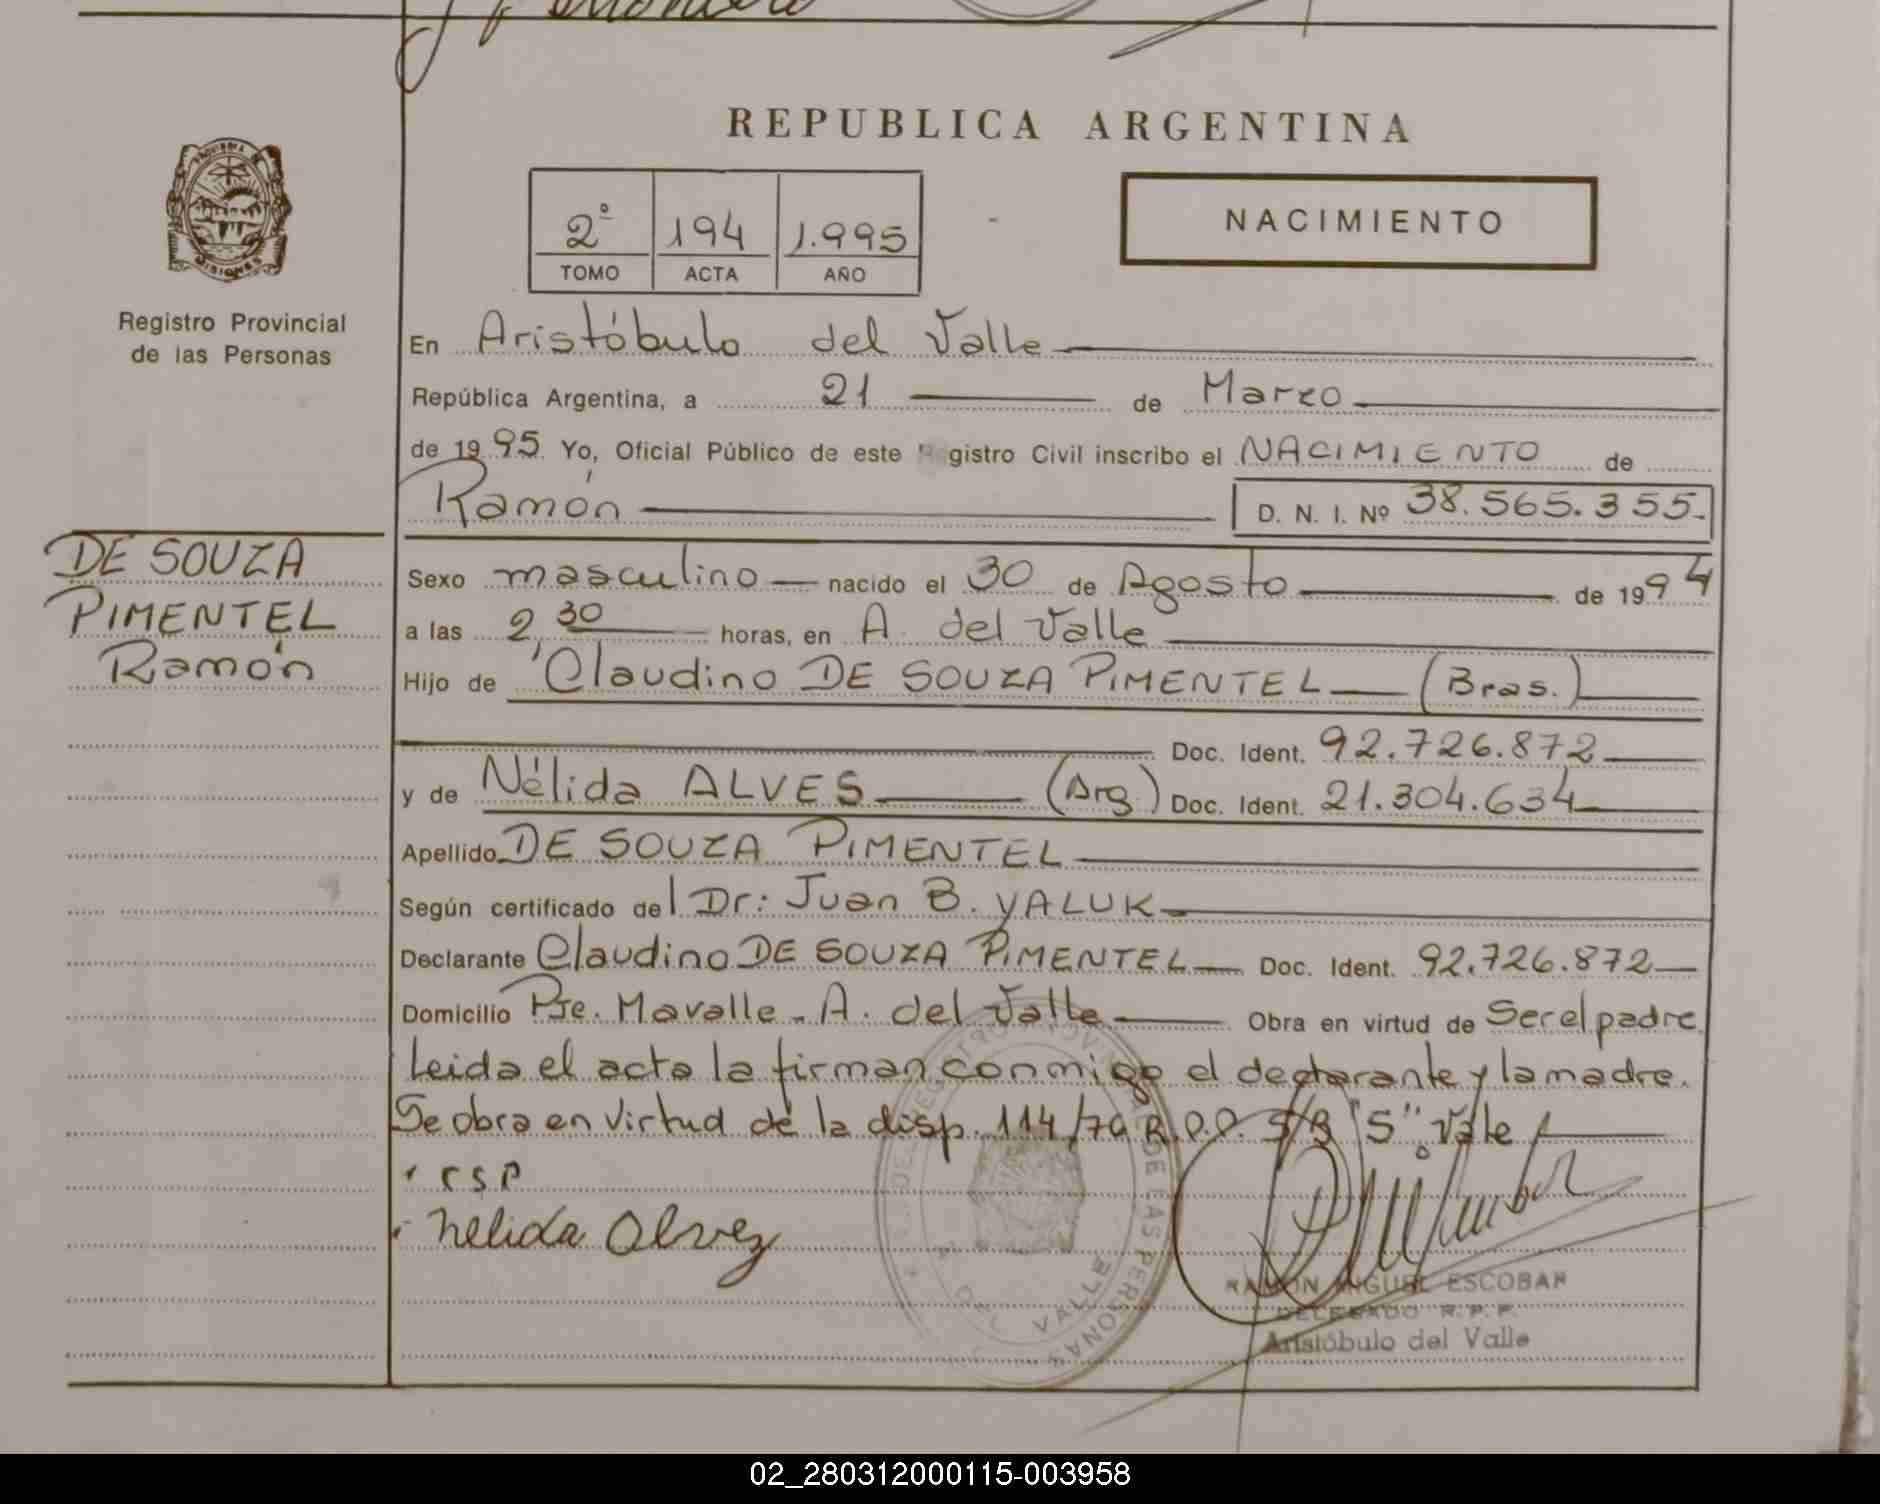 REPUBLICA ARGENTINA
PROVINCIA DE
MISIONES
Registro Provincial
de las Personas
2º 194 1.995
TOMO ACTA AÑO
NACIMIENTO
En Aristóbulo del Valle
República Argentina, a 21 de Marzo
de 1995 Yo, Oficial Público de este Registro Civil inscribo el NACIMIENTO de
Ramón D. N. I. Nº 38.565.355.
DE SOUZA
PIMENTEL
Ramón
Sexo masculino nacido el 30 de Agosto de 1994
a las 2,30 horas, en A. del Valle
Hijo de Claudino DE SOUZA PIMENTEL (Bras.)
Doc. Ident. 92.726.872
y de Nélida ALVES (Arg.) Doc. Ident. 21.304.634
Apellido DE SOUZA PIMENTEL
Según certificado del Dr: Juan B. YALUK
Declarante Claudino DE SOUZA PIMENTEL Doc. Ident. 92.726.872
Domicilio Pje. Mavalle - A. del Valle Obra en virtud de Ser el padre.
Leida el acta la firman conmigo el declarante y la madre.
Se obra en virtud de la disp. 114/79 R.P.P. S/B "S". Vale
CSP
Nelida Alvez
DEL VALLE
RAMON MIGUEL ESCOBAR
DELEGADO R. P. P.
Aristóbulo del Valle
02_280312000115-003958